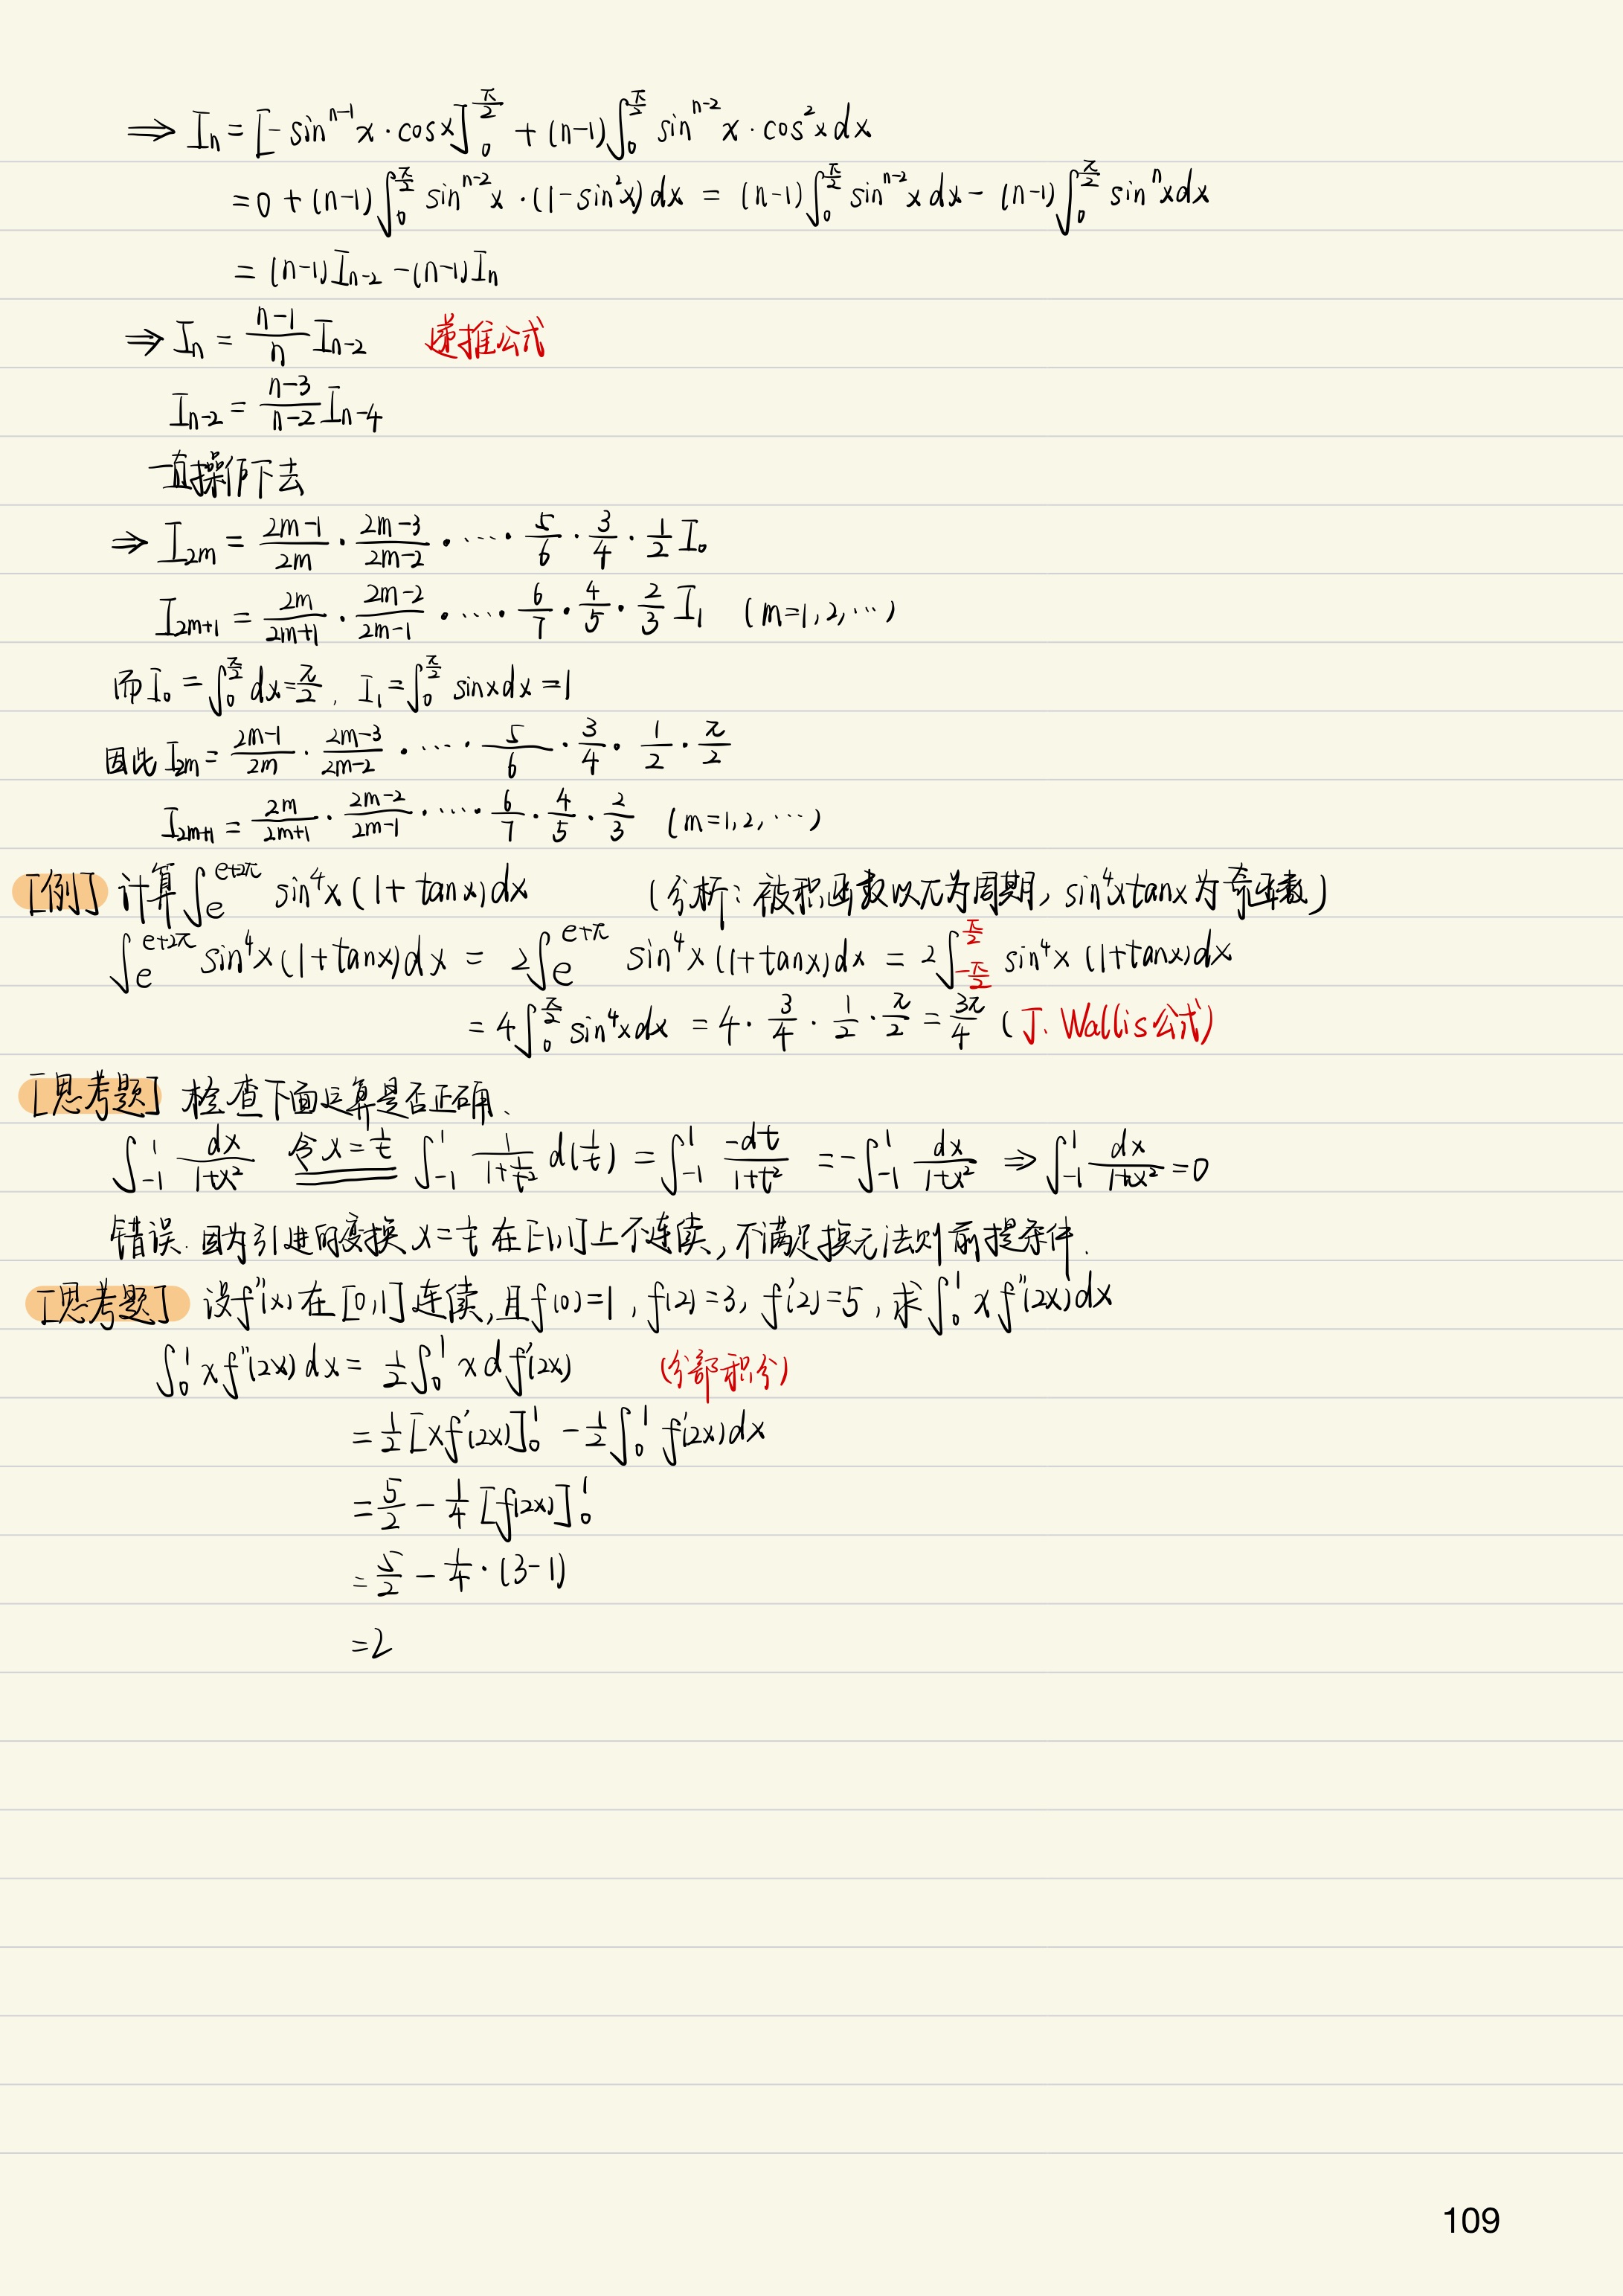 ⇒ Iₙ = [-sinⁿ⁻¹x · cosx]₀^(π/2) + (n-1)∫₀^(π/2) sinⁿ⁻²x · cos²x dx
= 0 + (n-1)∫₀^(π/2) sinⁿ⁻²x · (1-sin²x) dx = (n-1)∫₀^(π/2) sinⁿ⁻²x dx - (n-1)∫₀^(π/2) sinⁿx dx
= (n-1)Iₙ₋₂ - (n-1)Iₙ
⇒ Iₙ = (n-1)/n Iₙ₋₂ 递推公式
Iₙ₋₂ = (n-3)/(n-2) Iₙ₋₄
一直操作下去
⇒ I_{2m} = (2m-1)/(2m) · (2m-3)/(2m-2) · ⋯ · 5/6 · 3/4 · 1/2 I₀
I_{2m+1} = 2m/(2m+1) · (2m-2)/(2m-1) · ⋯ · 6/7 · 4/5 · 2/3 I₁ (m=1,2,⋯)
而I₀ = ∫₀^(π/2) dx = π/2, I₁ = ∫₀^(π/2) sinx dx = 1
因此 I_{2m} = (2m-1)/(2m) · (2m-3)/(2m-2) · ⋯ · 5/6 · 3/4 · 1/2 · π/2
I_{2m+1} = 2m/(2m+1) · (2m-2)/(2m-1) · ⋯ · 6/7 · 4/5 · 2/3 (m=1,2,⋯)
[例] 计算∫_e^(e+2π) sin⁴x(1+tanx)dx (分析:被积函数以π为周期, sin⁴xtanx为奇函数)
∫_e^(e+2π) sin⁴x(1+tanx)dx = 2∫_e^(e+π) sin⁴x(1+tanx)dx = 2∫_(-π/2)^(π/2) sin⁴x(1+tanx)dx
= 4∫₀^(π/2) sin⁴x dx = 4 · 3/4 · 1/2 · π/2 = 3π/4 (J. Wallis公式)
[思考题] 检查下面运算是否正确.
∫₋₁¹ dx/(1+x²) 令x=1/t ∫₋₁¹ 1/(1+1/t²) d(1/t) = ∫₋₁¹ -dt/(1+t²) = -∫₋₁¹ dx/(1+x²) ⇒ ∫₋₁¹ dx/(1+x²) = 0
错误. 因为引进的变换 x=1/t 在[-1,1]上不连续, 不满足换元法则前提条件.
[思考题] 设f''(x)在[0,1]连续,且f(0)=1, f(2)=3, f'(2)=5, 求∫₀¹ xf''(2x)dx
∫₀¹ xf''(2x)dx = 1/2 ∫₀¹ x df'(2x) (分部积分)
= 1/2 [xf'(2x)]₀¹ - 1/2 ∫₀¹ f'(2x)dx
= 5/2 - 1/4 [f(2x)]₀¹
= 5/2 - 1/4 · (3-1)
= 2
109